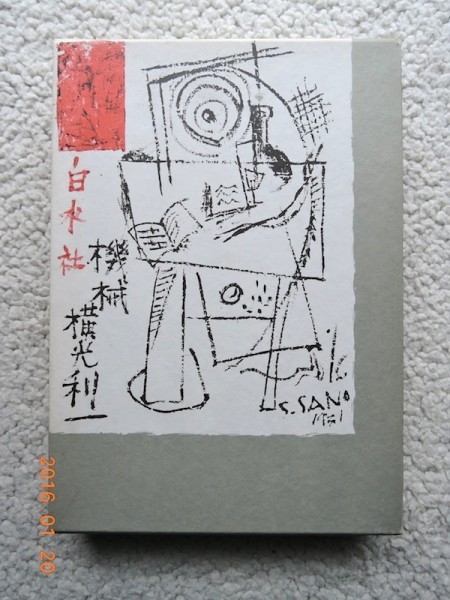 白水社
機械
横光利一
S.SANO
2016 01 20